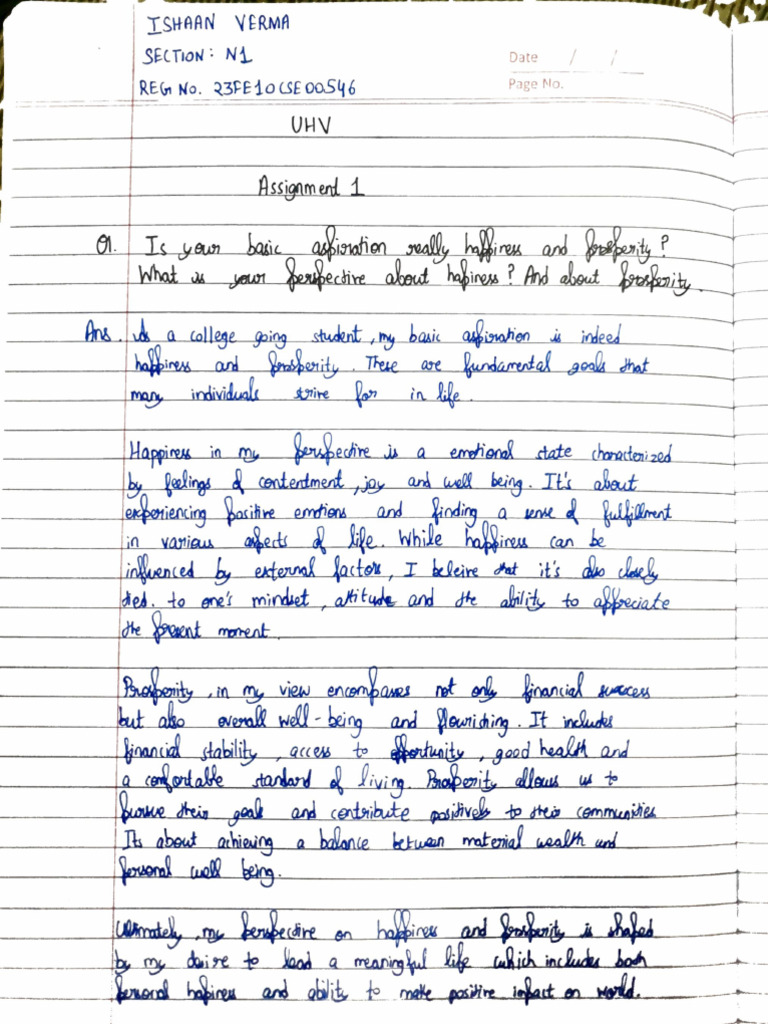 ISHAAN VERMA
SECTION: N1
REG NO. 23FE10CSE00546
Date / /
Page No.
UHV
Assignment 1
Q1. Is your basic aspiration really happiness and prosperity?
What is your perspective about hapiness? And about prosperity.
Ans. As a college going student, my basic aspiration is indeed
happiness and prosperity. These are fundamental goals that
many individuals strive for in life.
Happiness in my perspective is a emotional state characterized
by feelings of contentment, joy and well being. It's about
experiencing positive emotions and finding a sense of fulfillment
in various aspects of life. While happiness can be
influenced by external factors, I beleive that it's also closely
tied. to one's mindset, attitude and the ability to appreciate
the present moment.
Prosperity, in my view encompasses not only financial success
but also overall well-being and flourishing. It includes
financial stability, access to opportunity, good health and
a comfortable standard of living. Prosperity allows us to
pursue their goals and contribute positively to their communities
Its about achieving a balance between material wealth and
personal well being.
Ultimately, my perspective on happiness and prosperity is shaped
by my desire to lead a meaningful life which includes both
personal hapiness and ability to make positive impact on world.